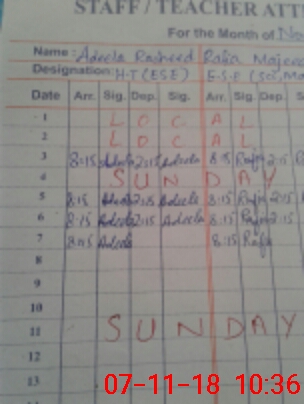 STAFF / TEACHER ATT
For the Month of No
Name: Adeela Rasheed Rafia Majeed
Designation: H-T (ESE) E-S-E (Sci, Ma
Date Arr. Sig. Dep. Sig. Arr. Sig. Dep. S
1 L O C A L
2 L O C A L
3 8:15 Adeela 2:15 Adeela 8:15 Rafia 2:15
4 S U N D A Y
5 8:15 Adeela 2:15 Adeela 8:15 Rafia 2:15
6 8:15 Adeela 2:15 Adeela 8:15 Rafia 2:15
7 8:15 Adeela 8:15 Rafia
8
9
10
11 S U N D A Y
12
13
07-11-18 10:36